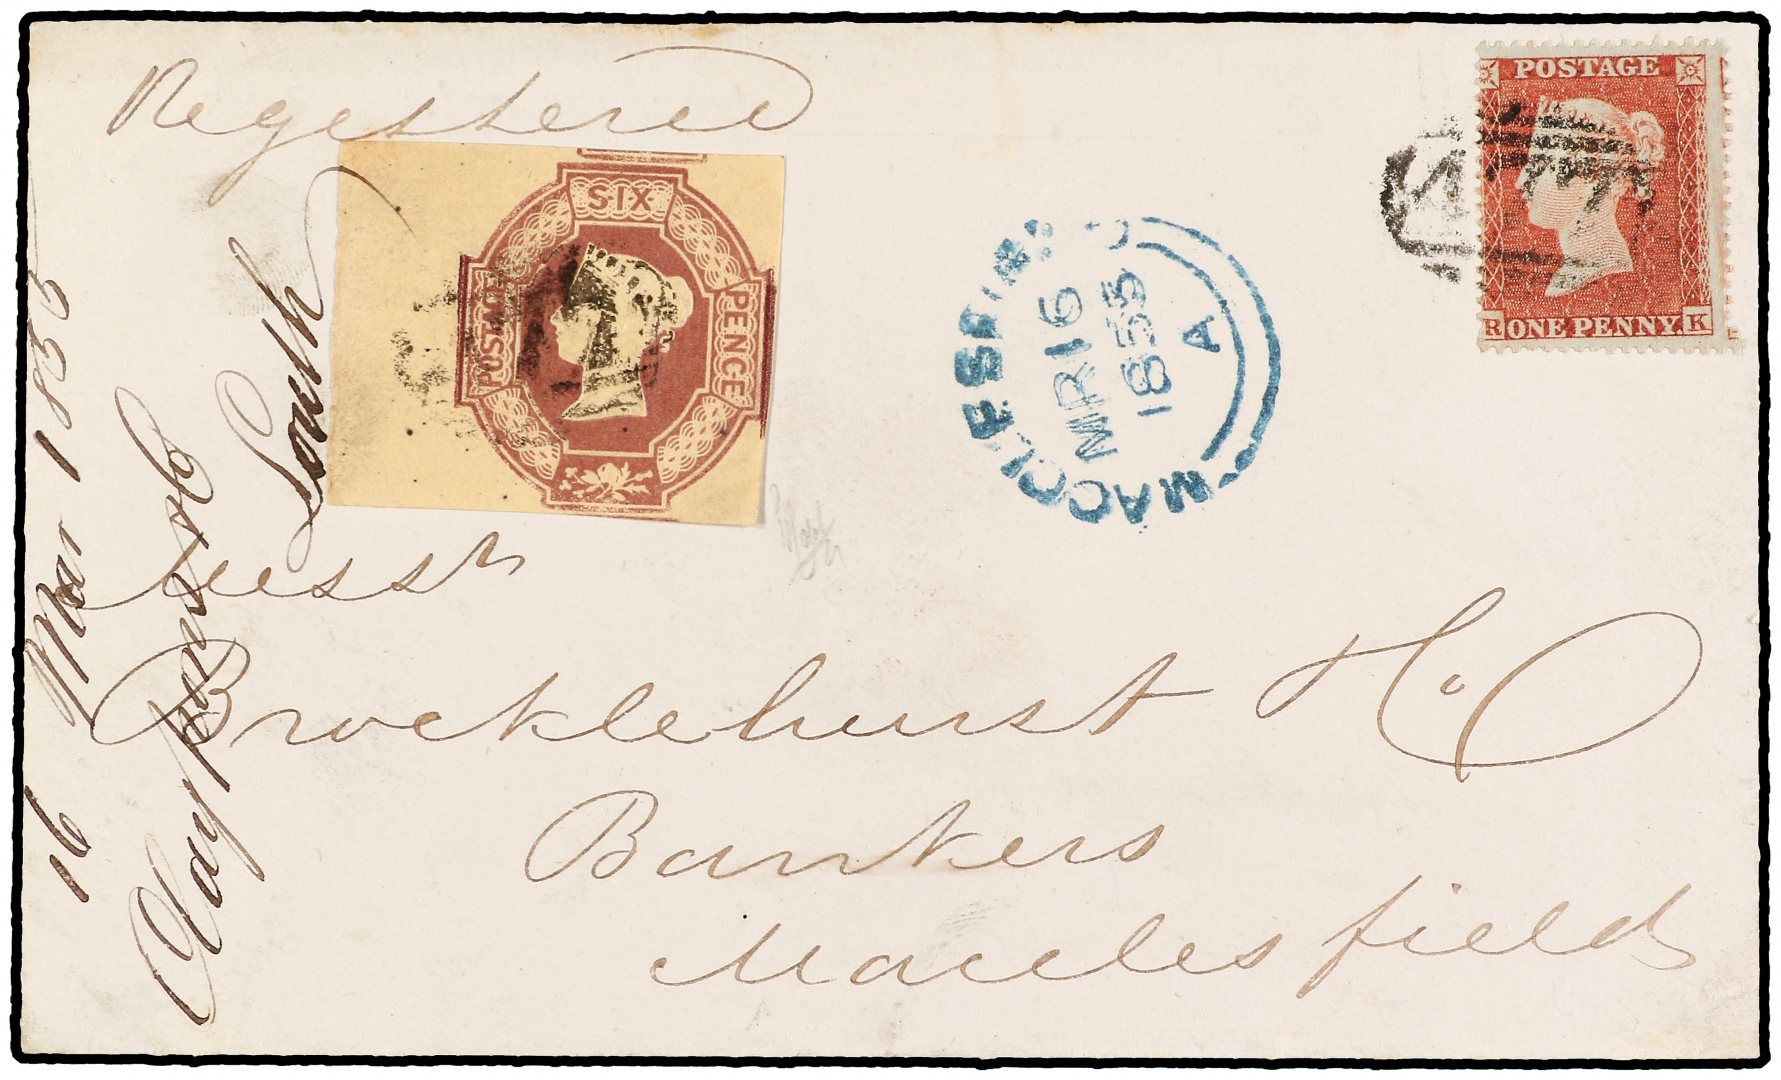 Registered
POSTAGE
ONE PENNY
R K
SIX
PENCE
POSTAGE
MACCLESFIELD
MR 16
1855
A
16 Mar 1855
South
Messrs
Brocklehurst & Co
Bankers
Macclesfield